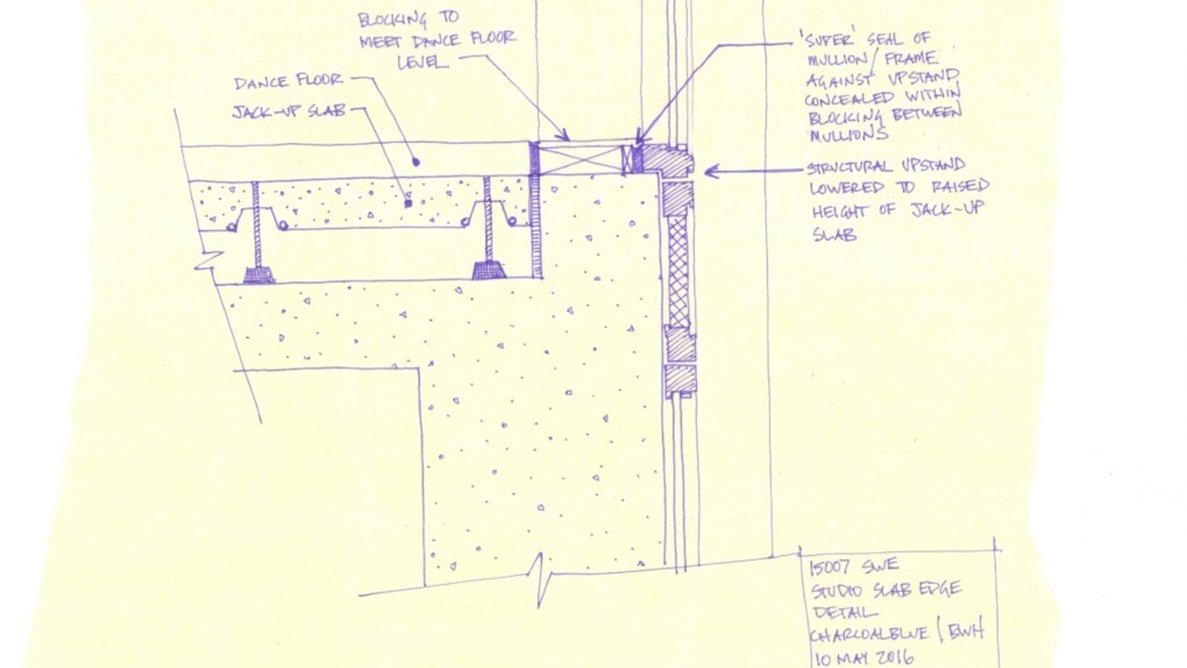 BLOCKING TO
MEET DANCE FLOOR
LEVEL
DANCE FLOOR
JACK-UP SLAB
'SUPER' SEAL OF
MULLION/FRAME
AGAINST UPSTAND
CONCEALED WITHIN
BLOCKING BETWEEN
MULLIONS
STRUCTURAL UPSTAND
LOWERED TO RAISED
HEIGHT OF JACK-UP
SLAB
15007 SWE
STUDIO SLAB EDGE
DETAIL
CHARCOALBLUE | BWH
10 MAY 2016